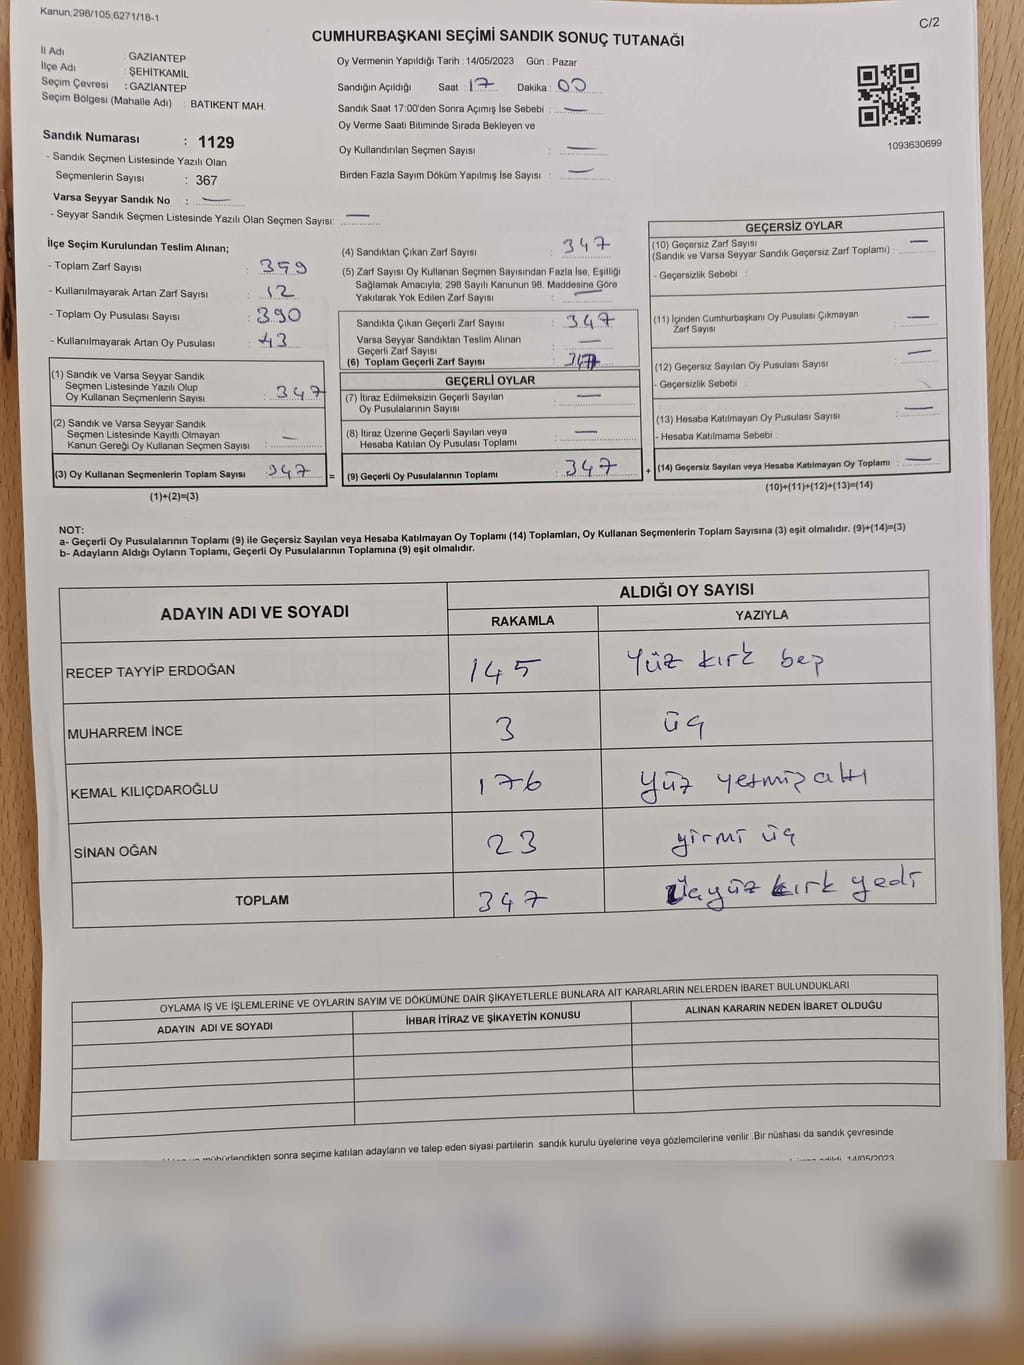 Kanun,298/105,6271/18-1
C/2
CUMHURBAŞKANI SEÇİMİ SANDIK SONUÇ TUTANAĞI
İl Adı : GAZİANTEP
İlçe Adı : ŞEHİTKAMİL
Seçim Çevresi : GAZİANTEP
Seçim Bölgesi (Mahalle Adı) : BATIKENT MAH.
Sandık Numarası : 1129
- Sandık Seçmen Listesinde Yazılı Olan
Seçmenlerin Sayısı : 367
Varsa Seyyar Sandık No : —
- Seyyar Sandık Seçmen Listesinde Yazılı Olan Seçmen Sayısı: —
Oy Vermenin Yapıldığı Tarih : 14/05/2023 Gün : Pazar
Sandığın Açıldığı Saat : 17 Dakika : 00
Sandık Saat 17:00'den Sonra Açımış İse Sebebi : —
Oy Verme Saati Bitiminde Sırada Bekleyen ve
Oy Kullandırılan Seçmen Sayısı : —
Birden Fazla Sayım Döküm Yapılmış İse Sayısı : —
1093630699
İlçe Seçim Kurulundan Teslim Alınan;
- Toplam Zarf Sayısı : 359
- Kullanılmayarak Artan Zarf Sayısı : 12
- Toplam Oy Pusulası Sayısı : 390
- Kullanılmayarak Artan Oy Pusulası : 43
(1) Sandık ve Varsa Seyyar Sandık
Seçmen Listesinde Yazılı Olup
Oy Kullanan Seçmenlerin Sayısı : 347
(2) Sandık ve Varsa Seyyar Sandık
Seçmen Listesinde Kayıtlı Olmayan
Kanun Gereği Oy Kullanan Seçmen Sayısı : —
(3) Oy Kullanan Seçmenlerin Toplam Sayısı : 347 =
(1)+(2)=(3)
(4) Sandıktan Çıkan Zarf Sayısı : 347
(5) Zarf Sayısı Oy Kullanan Seçmen Sayısından Fazla İse, Eşitliği
Sağlamak Amacıyla; 298 Sayılı Kanunun 98. Maddesine Göre
Yakılarak Yok Edilen Zarf Sayısı : —
Sandıkta Çıkan Geçerli Zarf Sayısı : 347
Varsa Seyyar Sandıktan Teslim Alınan
Geçerli Zarf Sayısı : —
(6) Toplam Geçerli Zarf Sayısı : 347
GEÇERLİ OYLAR
(7) İtiraz Edilmeksizin Geçerli Sayılan
Oy Pusulalarının Sayısı : —
(8) İtiraz Üzerine Geçerli Sayılan veya
Hesaba Katılan Oy Pusulası Toplamı : —
(9) Geçerli Oy Pusulalarının Toplamı : 347 +
GEÇERSİZ OYLAR
(10) Geçersiz Zarf Sayısı —
(Sandık ve Varsa Seyyar Sandık Geçersiz Zarf Toplamı) :
- Geçersizlik Sebebi :
(11) İçinden Cumhurbaşkanı Oy Pusulası Çıkmayan
Zarf Sayısı : —
(12) Geçersiz Sayılan Oy Pusulası Sayısı : —
- Geçersizlik Sebebi :
(13) Hesaba Katılmayan Oy Pusulası Sayısı : —
- Hesaba Katılmama Sebebi :
(14) Geçersiz Sayılan veya Hesaba Katılmayan Oy Toplamı : —
(10)+(11)+(12)+(13)=(14)
NOT:
a- Geçerli Oy Pusulalarının Toplamı (9) ile Geçersiz Sayılan veya Hesaba Katılmayan Oy Toplamı (14) Toplamları, Oy Kullanan Seçmenlerin Toplam Sayısına (3) eşit olmalıdır. (9)+(14)=(3)
b- Adayların Aldığı Oyların Toplamı, Geçerli Oy Pusulalarının Toplamına (9) eşit olmalıdır.
ADAYIN ADI VE SOYADI
ALDIĞI OY SAYISI
RAKAMLA YAZIYLA
RECEP TAYYİP ERDOĞAN 145 Yüz kırk beş
MUHARREM İNCE 3 üç
KEMAL KILIÇDAROĞLU 176 Yüz yetmiş altı
SİNAN OĞAN 23 yirmi üç
TOPLAM 347 Üçyüz kırk yedi
OYLAMA İŞ VE İŞLEMLERİNE VE OYLARIN SAYIM VE DÖKÜMÜNE DAİR ŞİKAYETLERLE BUNLARA AİT KARARLARIN NELERDEN İBARET BULUNDUKLARI
ADAYIN ADI VE SOYADI İHBAR İTİRAZ VE ŞİKAYETİN KONUSU ALINAN KARARIN NEDEN İBARET OLDUĞU
mühürlendikten sonra seçime katılan adayların ve talep eden siyasi partilerin sandık kurulu üyelerine veya gözlemcilerine verilir .Bir nüshası da sandık çevresinde
edildi. 14/05/2023